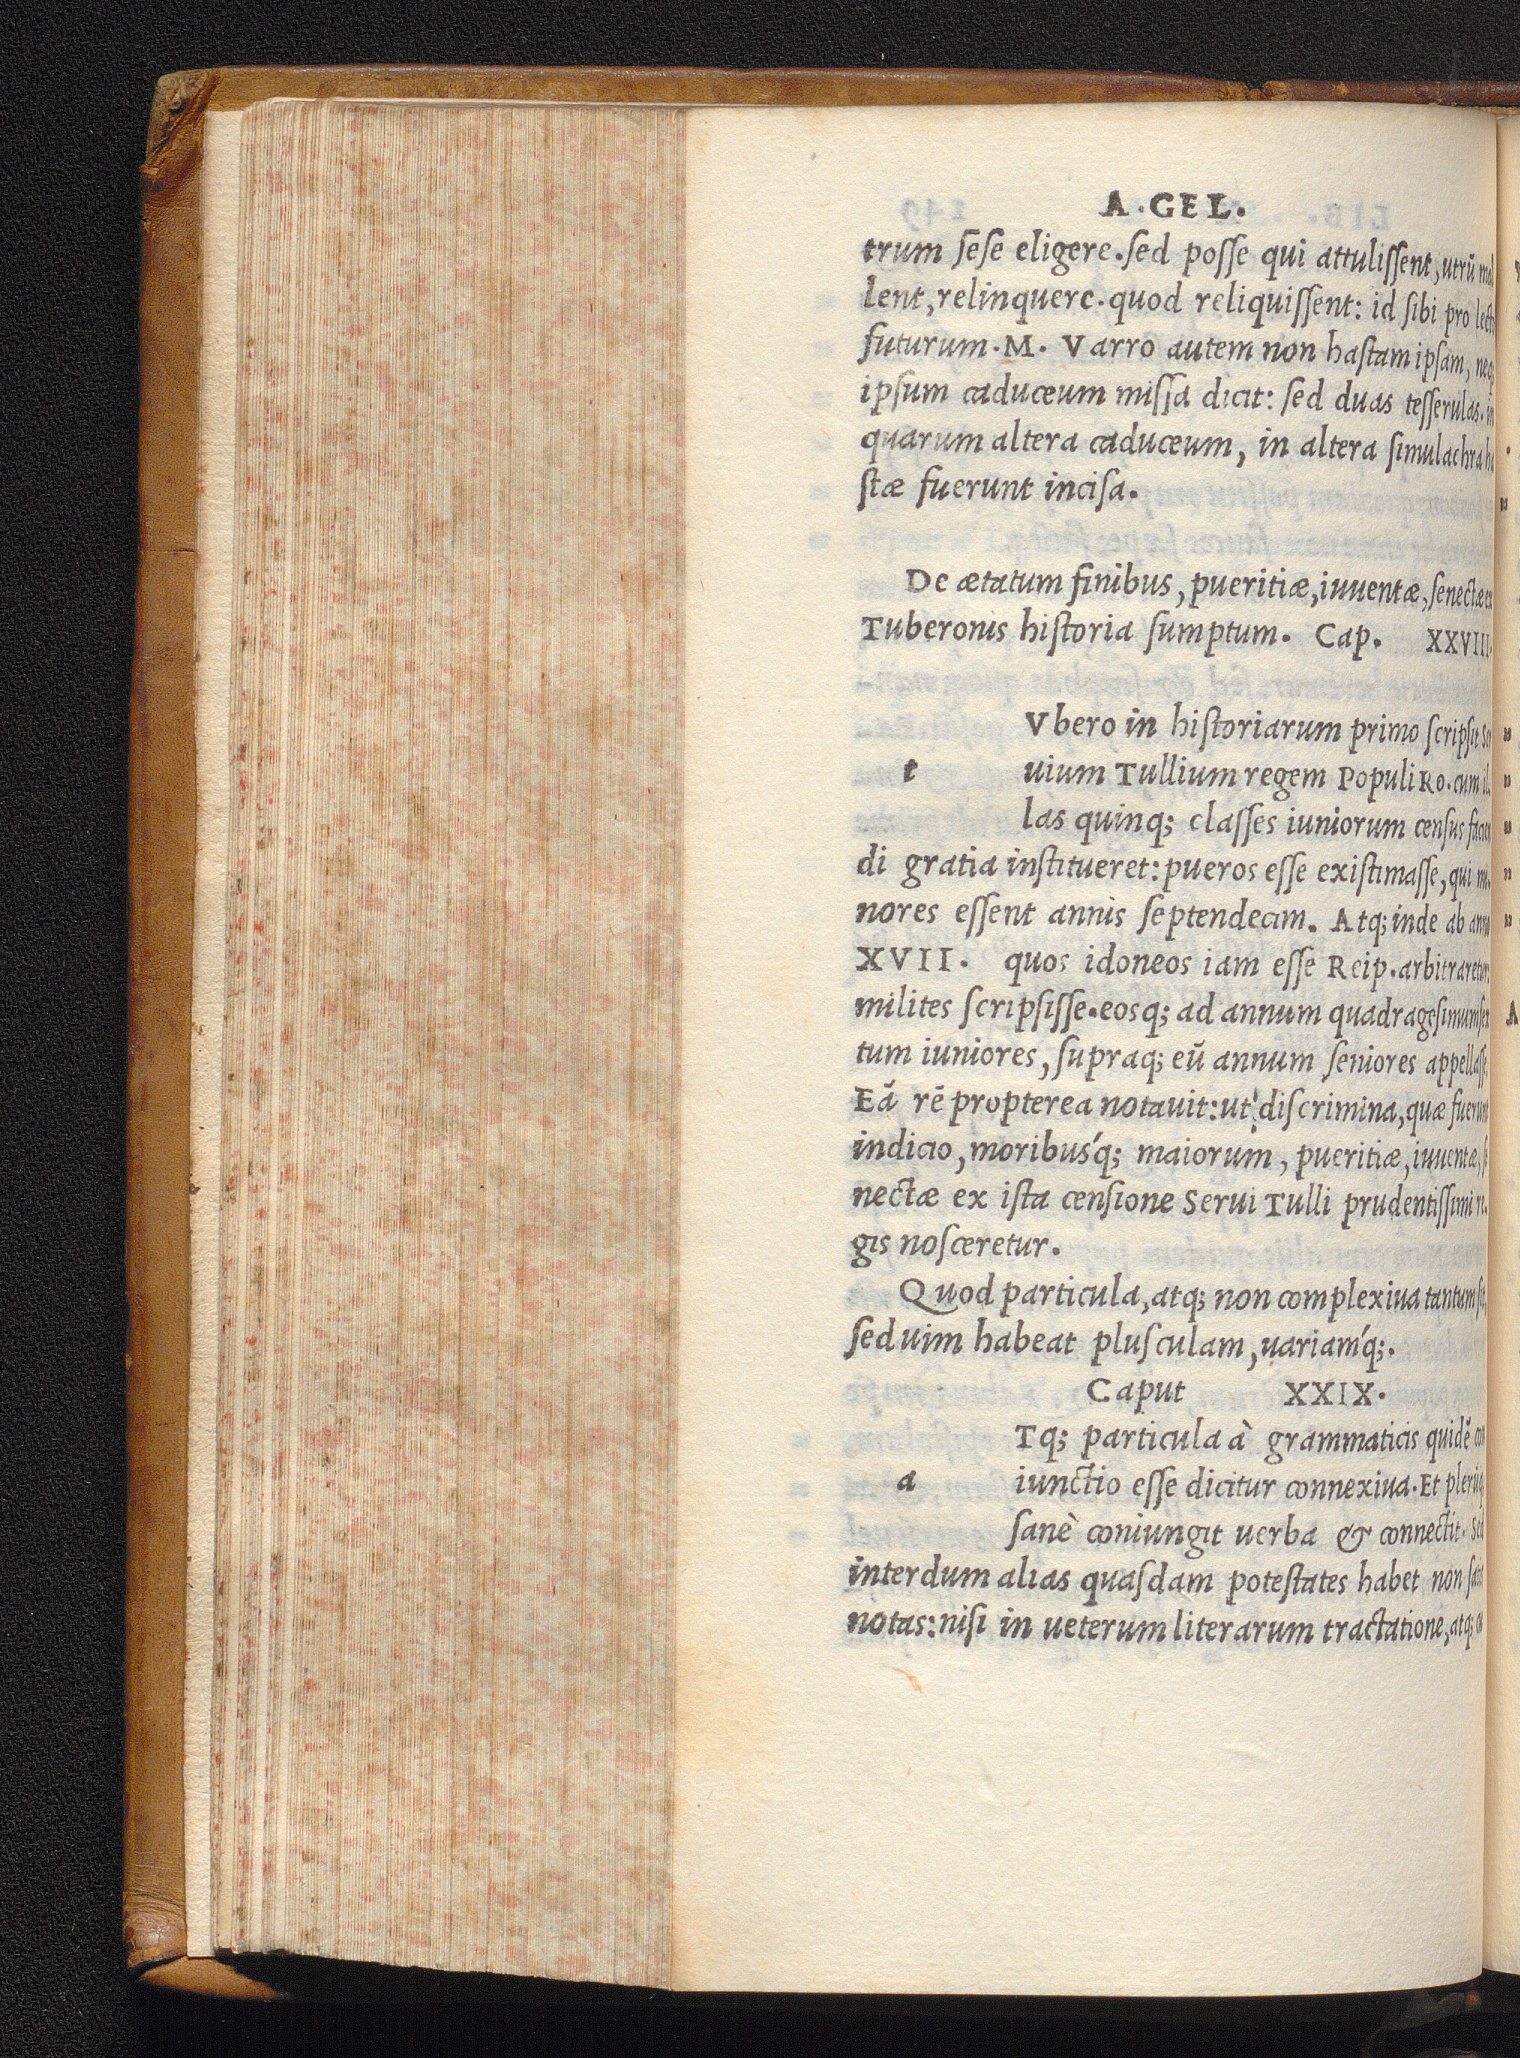 A.GEL.
trum sese eligere.sed posse qui attulissent, utrū mal
lent, relinquere.quod reliquissent: id sibi pro lecto
futurum.M. Varro autem non hastam ipsam, neq;
ipsum caduceum missa dicit: sed duas tesserulas.in
quarum altera caduceum, in altera simulachra ha
stæ fuerunt incisa.
De ætatum finibus, pueritiæ, iuuentæ, senectæ ex
Tuberonis historia sumptum. Cap. XXVIII.
Vbero in historiarum primo scripsit Ser
t uium Tullium regem Populi Ro.cum il.
las quinq; classes iuniorum census facien
di gratia institueret: pueros esse existimasse, qui mi.
nores essent annis septendecim. Atq; inde ab anno
XVII. quos idoneos iam esse Reip.arbitraretur:
milites scripsisse.eosq; ad annum quadragesimum sex
tum iuniores, supraq; eū annum seniores appellasse.
Eā rē propterea notauit: ut discrimina, quæ fuerunt
indicio, moribus'q; maiorum, pueritiæ, iuuentæ, se
nectæ ex ista censione Serui Tulli prudentissimi re.
gis nosceretur.
Quod particula, atq; non complexiua tantum sit,
sed uim habeat plusculam, uariam'q;.
Caput XXIX.
Tq; particula à grammaticis quidē con
a iunctio esse dicitur connexiua.Et plerūq;
sanè coniungit uerba & connectit. Sed
interdum alias quasdam potestates habet non satis
notas: nisi in ueterum literarum tractatione, atq;